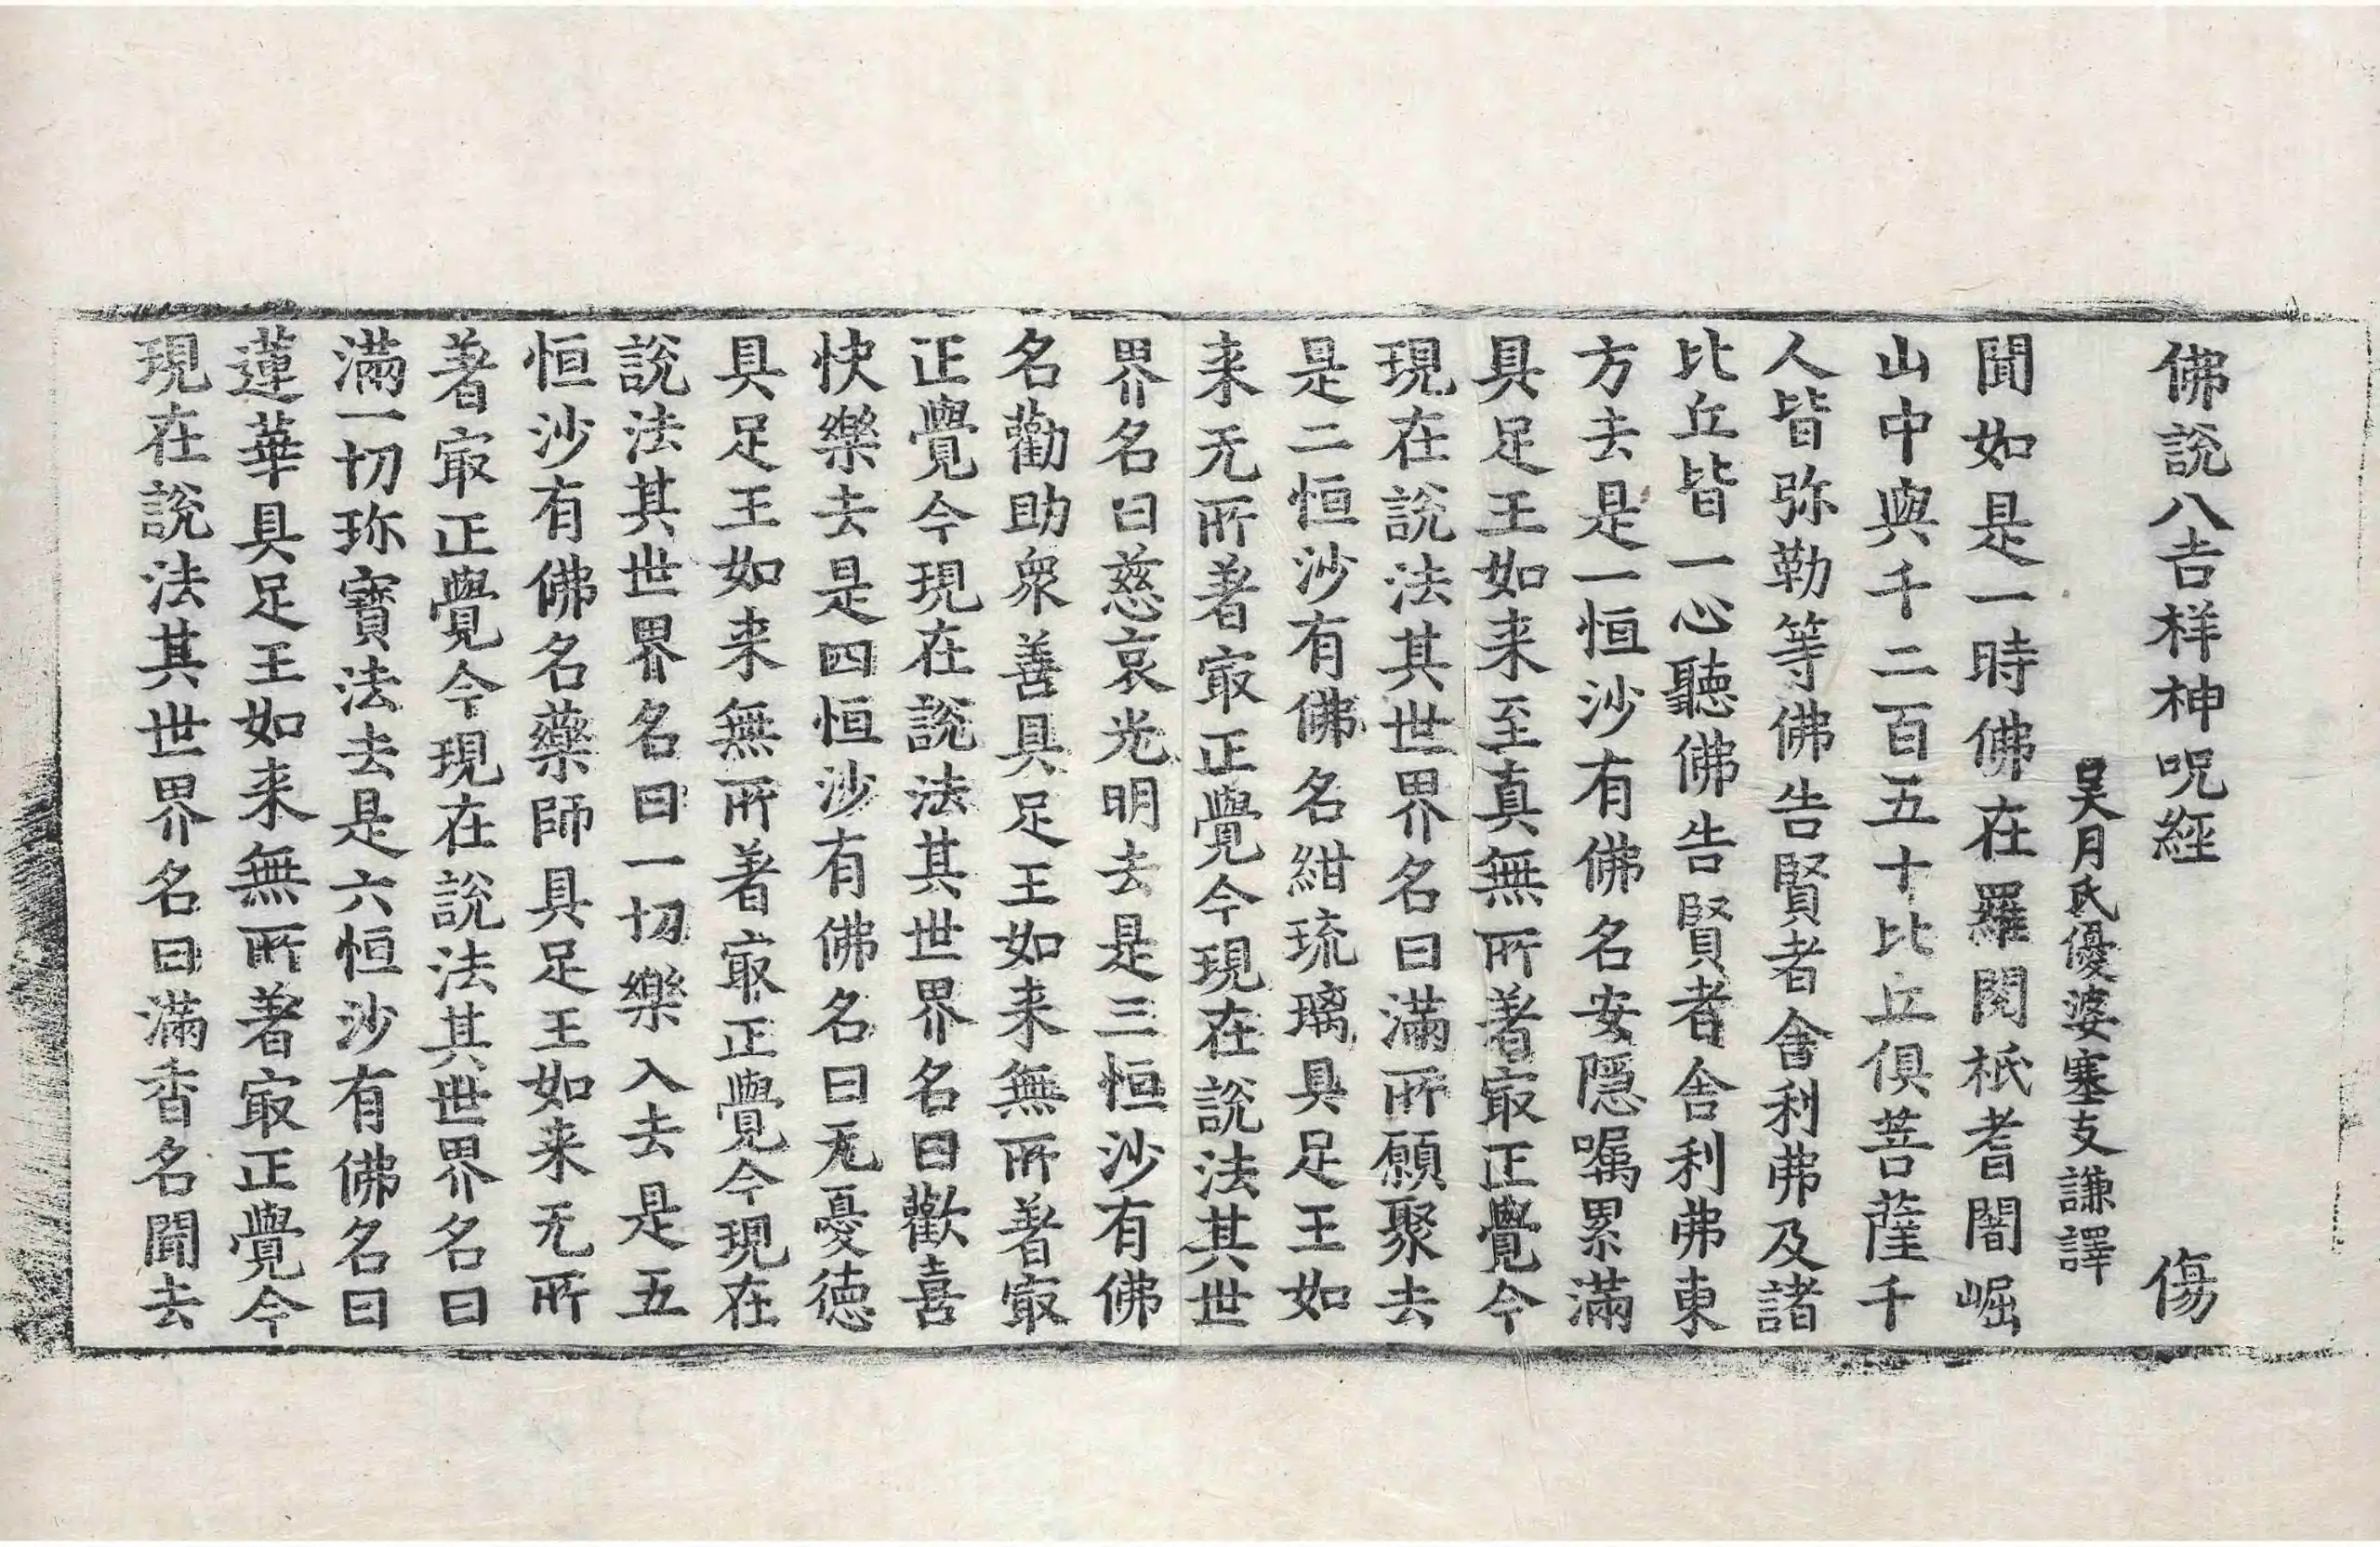 佛說八吉祥神呪經 傷
吳月氏優婆塞支謙譯
聞如是一時佛在羅閱祇耆闍崛
山中與千二百五十比丘俱菩薩千
人皆弥勒等佛告賢者舍利弗及諸
比丘皆一心聽佛告賢者舍利弗東
方去是一恒沙有佛名安隱囑累滿
具足王如来至真無所著冣正覺今
現在說法其世界名曰滿所願聚去
是二恒沙有佛名紺琉璃具足王如
来无所著冣正覺今現在說法其世
界名曰慈哀光明去是三恒沙有佛
名勸助衆善具足王如来無所著冣
正覺今現在說法其世界名曰歡喜
快樂去是四恒沙有佛名曰无憂德
具足王如来無所著冣正覺今現在
說法其世界名曰一切樂入去是五
恒沙有佛名藥師具足王如来无所
著冣正覺今現在說法其世界名曰
滿一切珎寶法去是六恒沙有佛名曰
蓮華具足王如来無所著冣正覺今
現在說法其世界名曰滿香名聞去